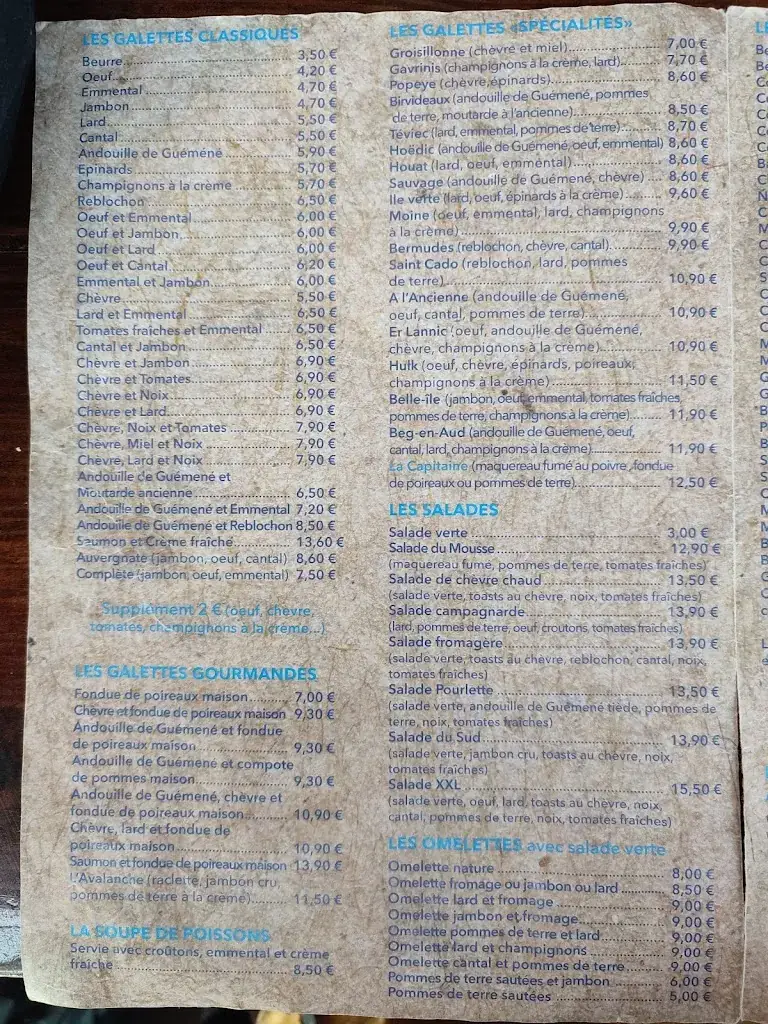 LES GALETTES CLASSIQUES
Beurre 3,50 €
Oeuf 4,20 €
Emmental 4,70 €
Jambon 4,70 €
Lard 5,50 €
Cantal 5,50 €
Andouille de Guémené 5,90 €
Epinards 5,70 €
Champignons à la crème 5,70 €
Reblochon 6,50 €
Oeuf et Emmental 6,00 €
Oeuf et Jambon 6,00 €
Oeuf et Lard 6,00 €
Oeuf et Cantal 6,20 €
Emmental et Jambon 6,00 €
Chèvre 5,50 €
Lard et Emmental 6,50 €
Tomates fraîches et Emmental 6,50 €
Cantal et Jambon 6,50 €
Chèvre et Jambon 6,90 €
Chèvre et Tomates 6,90 €
Chèvre et Noix 6,90 €
Chèvre et Lard 6,90 €
Chèvre, Noix et Tomates 7,90 €
Chèvre, Miel et Noix 7,90 €
Chèvre, Lard et Noix 7,90 €
Andouille de Guémené et
Moutarde ancienne 6,50 €
Andouille de Guémené et Emmental 7,20 €
Andouille de Guémené et Reblochon 8,50 €
Saumon et Crème fraîche 13,60 €
Auvergnate (jambon, oeuf, cantal) 8,60 €
Complète (jambon, oeuf, emmental) 7,50 €
Supplément 2 € (oeuf, chèvre,
tomates, champignons à la crème...)
LES GALETTES GOURMANDES
Fondue de poireaux maison 7,00 €
Chèvre et fondue de poireaux maison 9,30 €
Andouille de Guémené et fondue
de poireaux maison 9,30 €
Andouille de Guémené et compote
de pommes maison 9,30 €
Andouille de Guémené, chèvre et
fondue de poireaux maison 10,90 €
Chèvre, lard et fondue de
poireaux maison 10,90 €
Saumon et fondue de poireaux maison 13,90 €
L'Avalanche (raclette, jambon cru,
pommes de terre à la crème) 11,50 €
LA SOUPE DE POISSONS
Servie avec croûtons, emmental et crème
fraîche 8,50 €
LES GALETTES «SPÉCIALITÉS»
Groisillonne (chèvre et miel) 7,00 €
Gavrinis (champignons à la crème, lard) 7,70 €
Popeye (chèvre, épinards) 8,60 €
Birvideaux (andouille de Guémené, pommes
de terre, moutarde à l'ancienne) 8,50 €
Téviec (lard, emmental, pommes de terre) 8,70 €
Hoëdic (andouille de Guémené, oeuf, emmental) 8,60 €
Houat (lard, oeuf, emmental) 8,60 €
Sauvage (andouille de Guémené, chèvre) 8,60 €
Ile verte (lard, oeuf, épinards à la crème) 9,60 €
Moine (oeuf, emmental, lard, champignons
à la crème) 9,90 €
Bermudes (reblochon, chèvre, cantal) 9,90 €
Saint Cado (reblochon, lard, pommes
de terre) 10,90 €
A l'Ancienne (andouille de Guémené,
oeuf, cantal, pommes de terre) 10,90 €
Er Lannic (oeuf, andouille de Guémené,
chèvre, champignons à la crème) 10,90 €
Hulk (oeuf, chèvre, épinards, poireaux,
champignons à la crème) 11,50 €
Belle-île (jambon, oeuf, emmental, tomates fraîches,
pommes de terre, champignons à la crème) 11,90 €
Beg-en-Aud (andouille de Guémené, oeuf,
cantal, lard, champignons à la crème) 11,90 €
La Capitaine (maquereau fumé au poivre, fondue
de poireaux ou pommes de terre) 12,50 €
LES SALADES
Salade verte 3,00 €
Salade du Mousse 12,90 €
(maquereau fumé, pommes de terre, tomates fraîches)
Salade de chèvre chaud 13,50 €
(salade verte, toasts au chèvre, noix, tomates fraîches)
Salade campagnarde 13,90 €
(lard, pommes de terre, oeuf, croutons, tomates fraîches)
Salade fromagère 13,90 €
(salade verte, toasts au chèvre, reblochon, cantal, noix,
tomates fraîches)
Salade Pourlette 13,50 €
(salade verte, andouille de Guémené tiède, pommes de
terre, noix, tomates fraîches)
Salade du Sud 13,90 €
(salade verte, jambon cru, toasts au chèvre, noix,
tomates fraîches)
Salade XXL 15,50 €
(salade verte, oeuf, lard, toasts au chèvre, noix,
cantal, pommes de terre, noix, tomates fraîches)
LES OMELETTES avec salade verte
Omelette nature 8,00 €
Omelette fromage ou jambon ou lard 8,50 €
Omelette lard et fromage 9,00 €
Omelette jambon et fromage 9,00 €
Omelette pommes de terre et lard 9,00 €
Omelette lard et champignons 9,00 €
Omelette cantal et pommes de terre 9,00 €
Pommes de terre sautées et jambon 6,00 €
Pommes de terre sautées 5,00 €